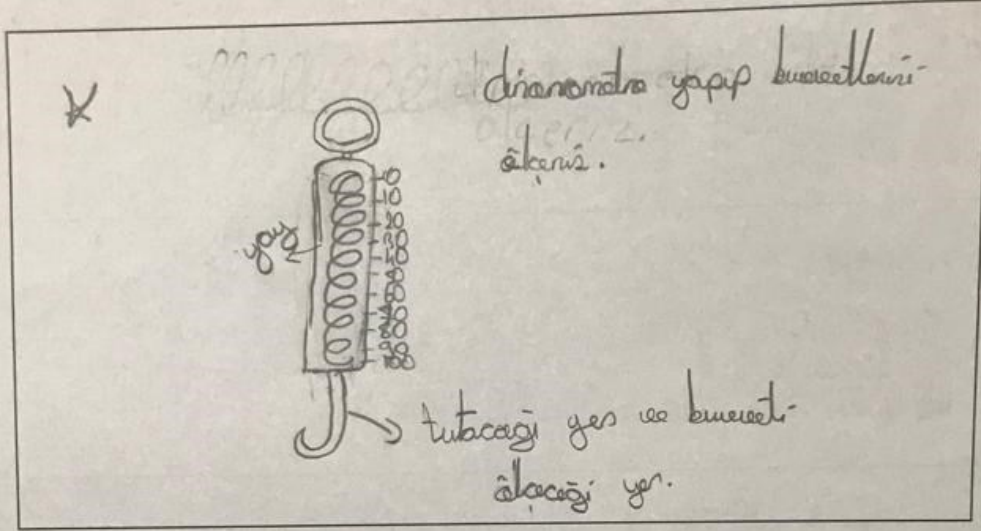 dinanometre yapıp kuvvetlerini
ölçeriz.
yay
0
10
20
30
40
50
60
70
80
90
100
tutacağı yer ve kuvveti
ölçeceği yer.